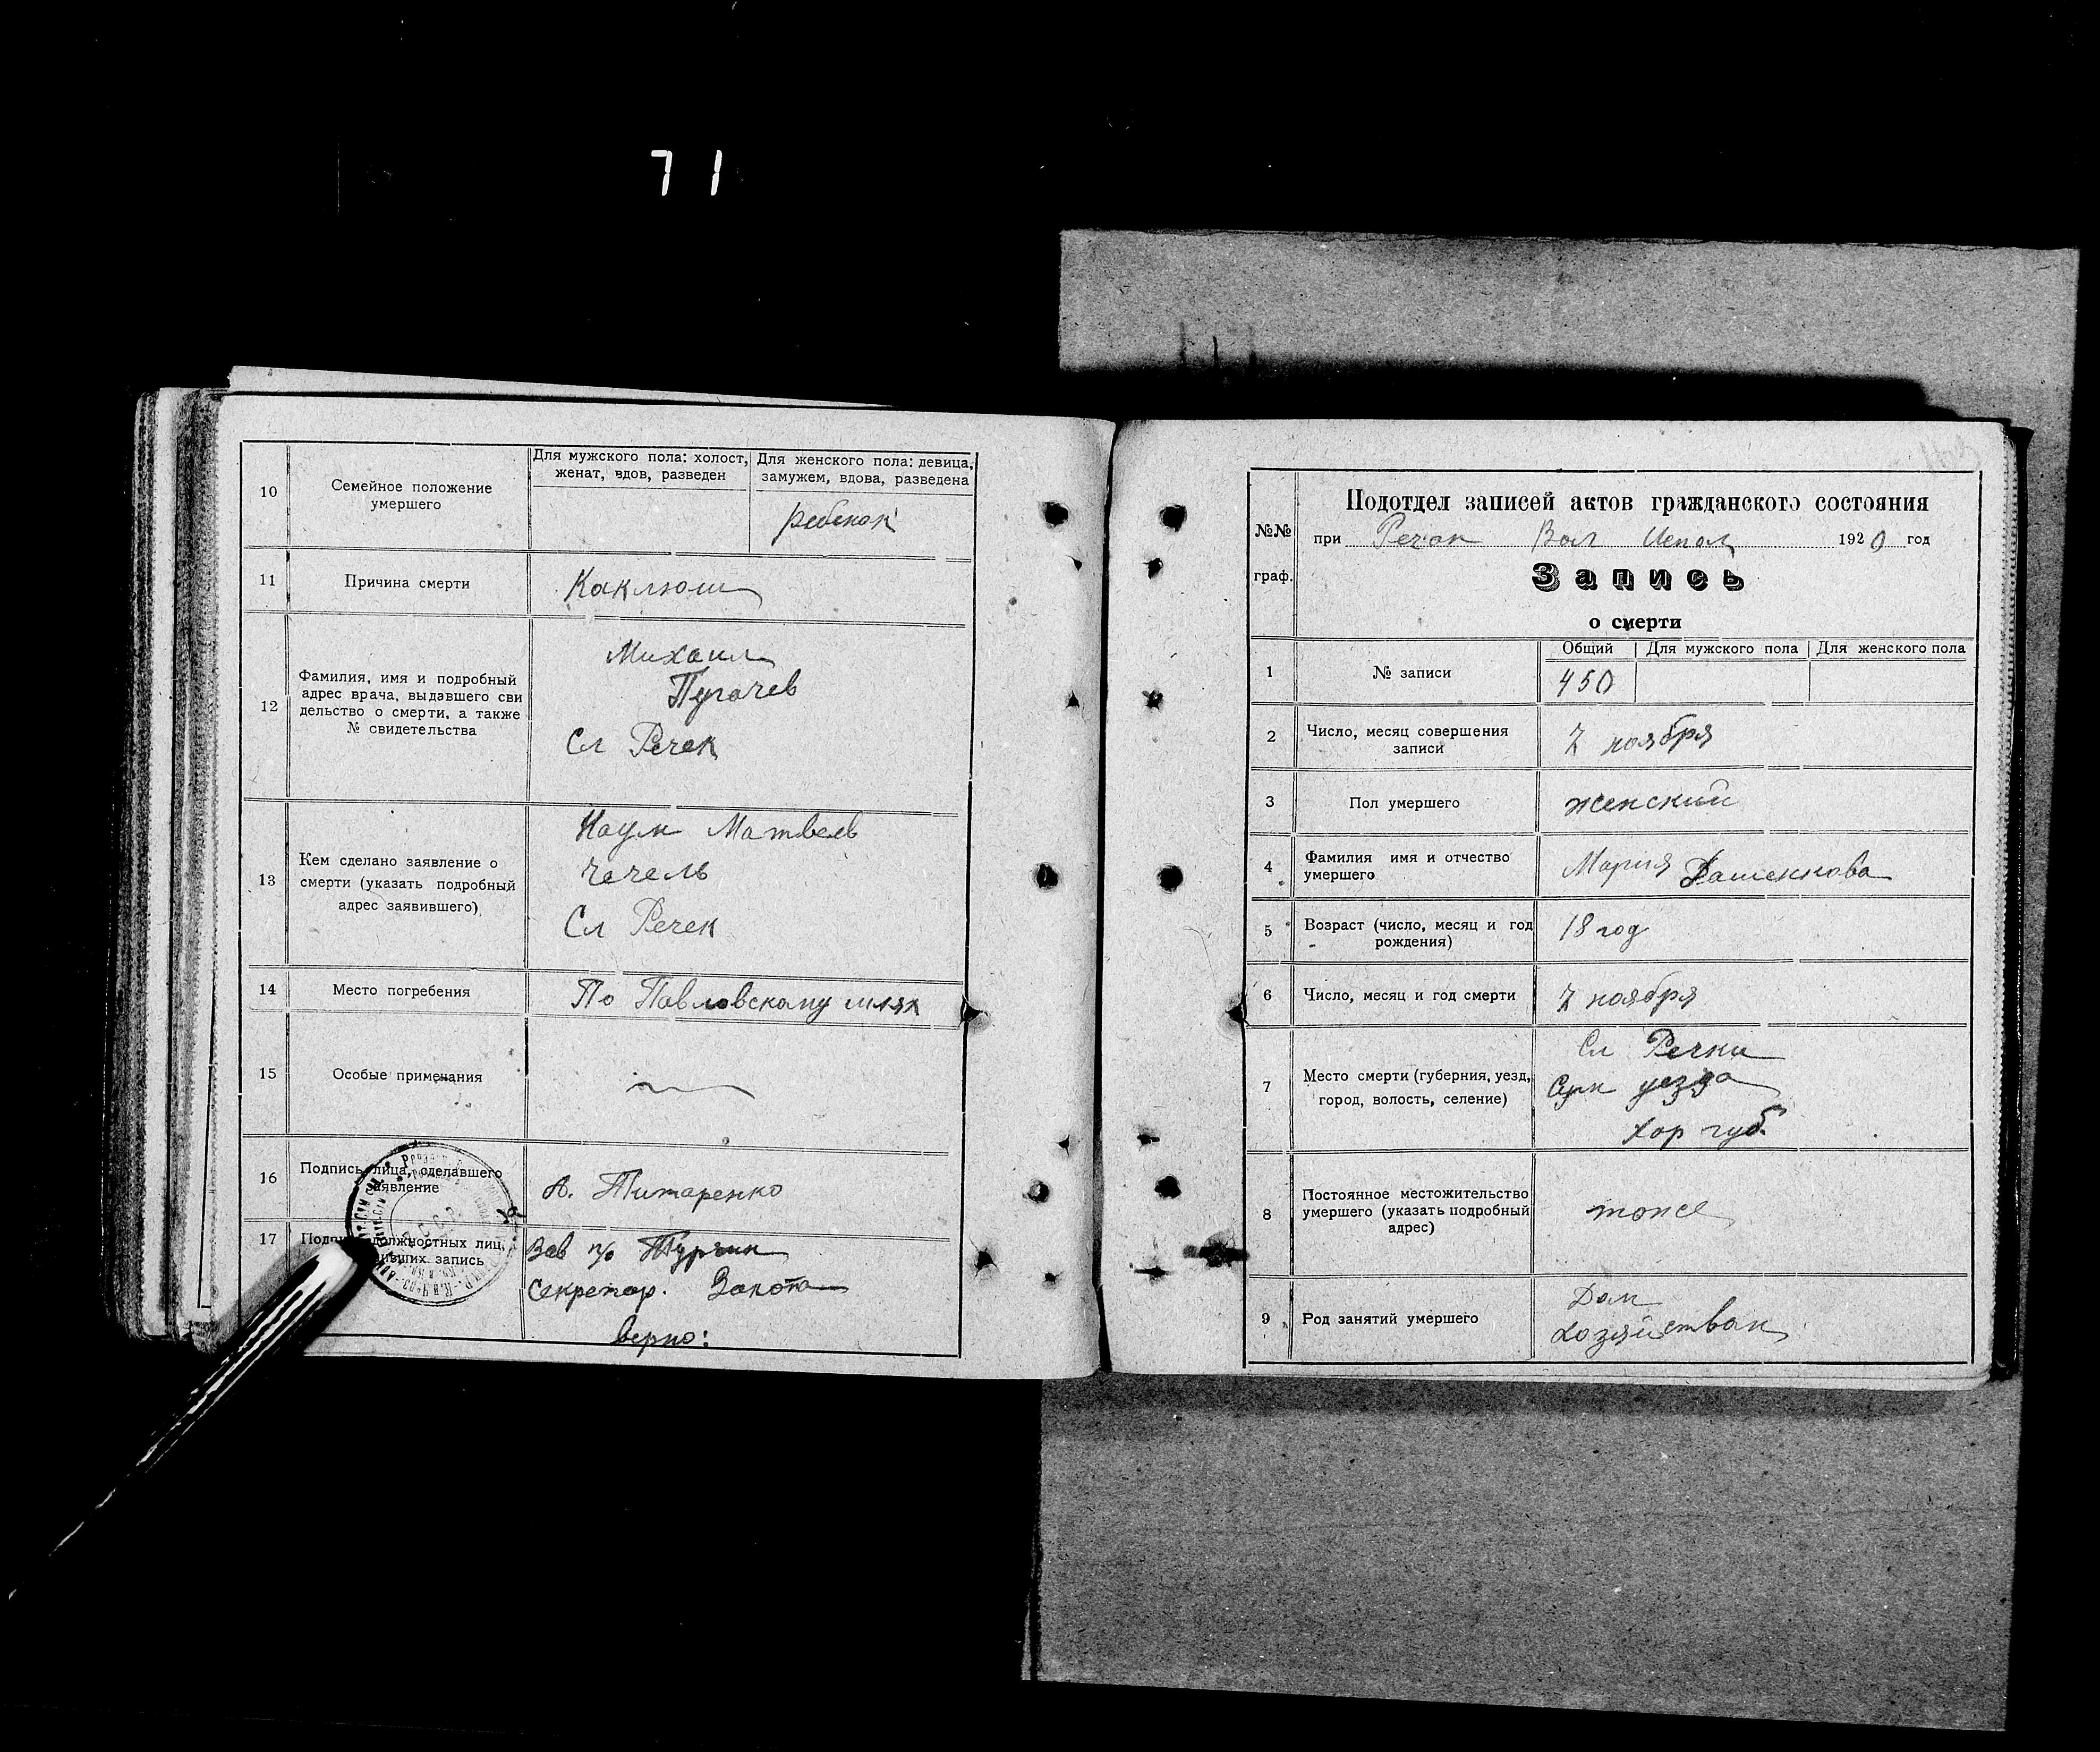 71
10
Семейное положение
умершего
Для мужского пола: холост,
женат, вдов, разведен
Для женского пола: девица,
замужем, вдова, разведена
ребенок
11
Причина смерти
Каклюш
12
Фамилия, имя и подробный
адрес врача, выдавшего сви
дельство о смерти, а также
№ свидетельства
Михаил
Пугачев
Сл Речек
13
Кем сделано заявление о
смерти (указать подробный
адрес заявившего)
Наум Матвеев
Чечель
Сл Речек
14
Место погребения
По Павловскому шлях
15
Особые примечания
16
Подпись лица, сделавшего
заявление
А. Титаренко
17
должностных лиц,
запись
Зав п/о
Секретар.
верно:
№№
граф.
Подотдел записей актов гражданского состояния
при Речан Вол Испол 1920 год
Запись
о смерти
1
№ записи
Общий
Для мужского пола
Для женского пола
450
2
Число, месяц совершения
записи
7 ноября
3
Пол умершего
женский
4
Фамилия имя и отчество
умершего
Мария
5
Возраст (число, месяц и год
рождения)
18 год
6
Число, месяц и год смерти
7 ноября
7
Место смерти (губерния, уезд,
город, волость, селение)
Сл Речки
Сум уезда
Хар губ.
8
Постоянное местожительство
умершего (указать подробный
адрес)
тоже
9
Род занятий умершего
Дом
хозяйством